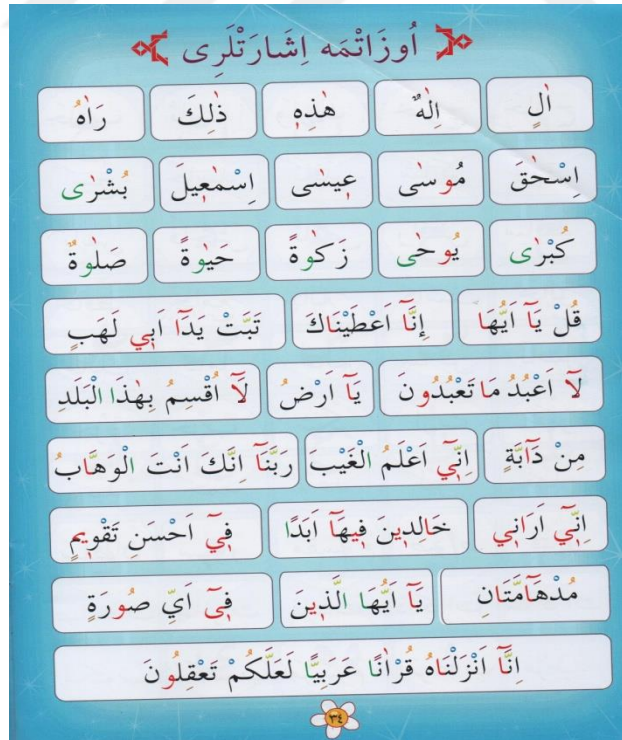 اُوزَاتْمَه اِشَارَتْلَرِى
اٰلٍ اِلٰهٌ هٰذِهٖ ذٰلِكَ رَاٰهُ
اِسْحٰقَ مُوسٰى عٖيسٰى اِسْمٰعٖيلَ بُشْرٰى
كُبْرٰى يُوحٰى زَكٰوةً حَيٰوةً صَلٰوةٌ
قُلْ يَٓا اَيُّهَا إِنَّٓا اَعْطَيْنَاكَ تَبَّتْ يَدَٓا اَبٖي لَهَبٍ
لَٓا اَعْبُدُ مَا تَعْبُدُونَ يَٓا اَرْضُ لَٓا اُقْسِمُ بِهٰذَا الْبَلَدِ
مِنْ دَٓابَّةٍ اِنّٖٓي اَعْلَمُ الْغَيْبَ رَبَّنَٓا اِنَّكَ اَنْتَ الْوَهَّابُ
اِنّٖٓي اَرَانٖي خَالِدٖينَ فٖيهَٓا اَبَدًا فٖٓي اَحْسَنِ تَقْوٖيمٍ
مُدْهَٓامَّتَانِ يَٓا اَيُّهَا الَّذٖينَ فٖٓى اَيِّ صُورَةٍ
اِنَّٓا اَنْزَلْنَاهُ قُرْاٰنًا عَرَبِيًّا لَعَلَّكُمْ تَعْقِلُونَ
٣٤